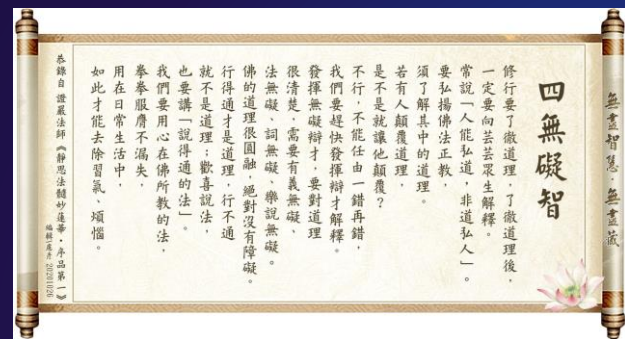 無盡智慧．無盡藏
四無礙智
修行要了徹道理，了徹道理後，
一定要向芸芸眾生解釋。
常說「人能弘道，非道弘人」。
要弘揚佛法正教，
須了解其中的道理。
若有人顛覆道理，
是不是就讓他顛覆？
不行，不能任由一錯再錯，
我們要趕快發揮辯才解釋。
發揮無礙辯才，要對道理
很清楚，需要有義無礙、
法無礙、詞無礙、樂說無礙。
佛的道理很圓融，絕對沒有障礙。
行得通才是道理，行不通
就不是道理；歡喜說法，
也要講「說得通的法」。
我們要用心在佛所教的法，
拳拳服膺不漏失，
用在日常生活中，
如此才能去除習氣、煩惱。
恭錄自 證嚴法師《靜思法髓妙蓮華．序品第一》
編輯 20201026